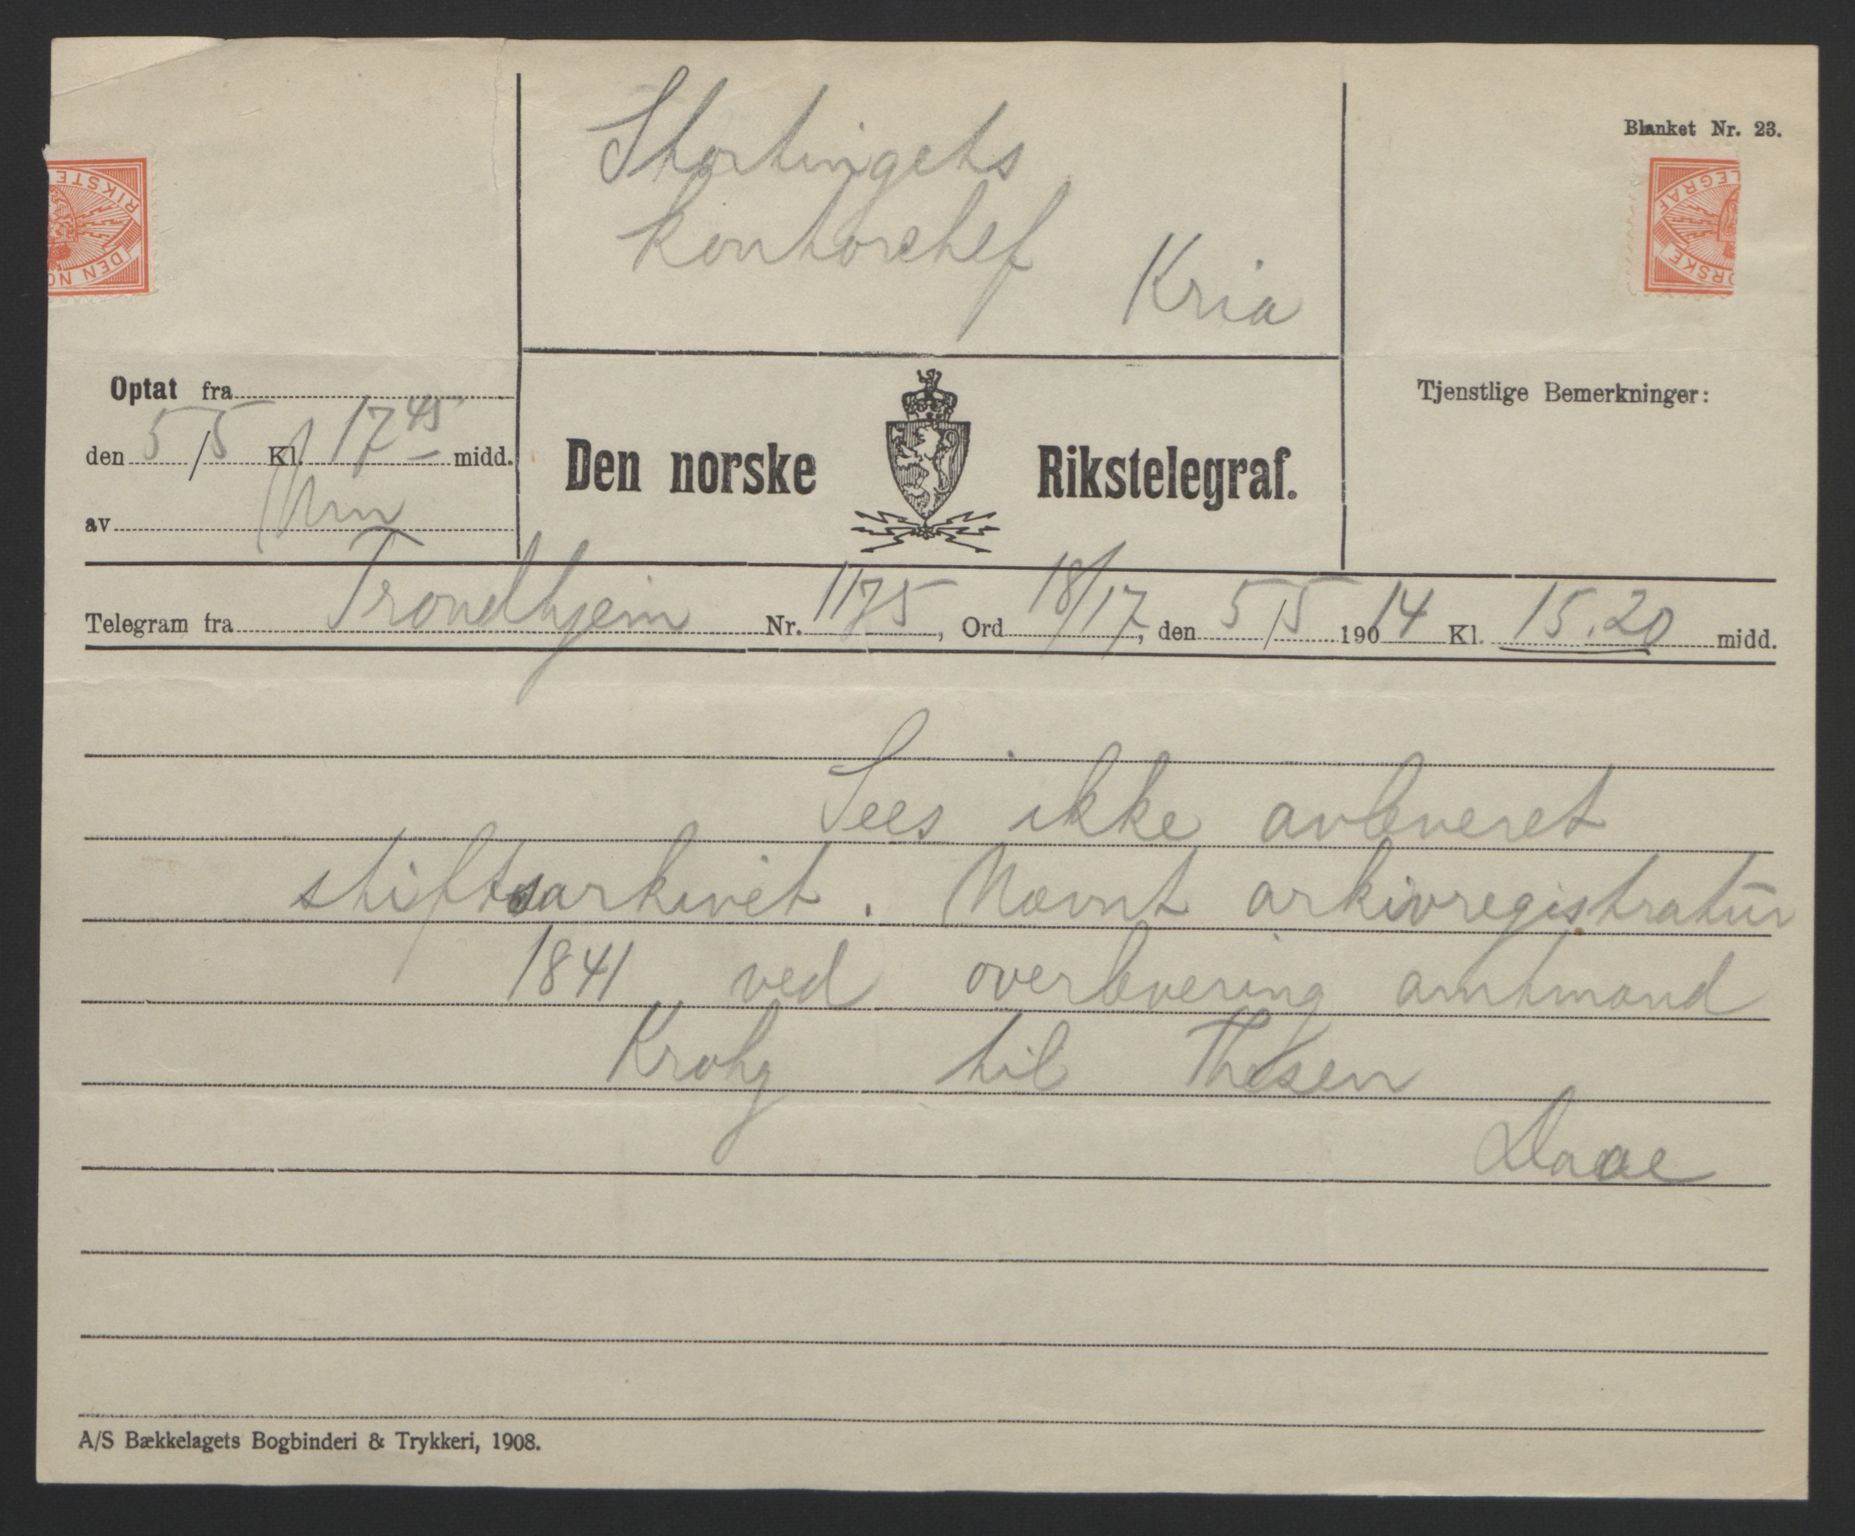 Stortingets
kontorchef
Kria
Blanket Nr. 23.
RIKSTE
DEN NO
LEGRAF
ORSKE
Optat fra
den 5/5 Kl. 17 45 midd.
av
Den norske Rikstelegraf.
Tjenstlige Bemerkninger:
Telegram fra Trondhjem Nr. 1175, Ord 18/17, den 5/5 1904 14 Kl. 15.20 midd.
Sees ikke avleveret
stiftsarkivet. Nævnt arkivregistratur
1841 ved overlevering amtmand
Krohg til Thesen
Daae
A/S Bækkelagets Bogbinderi & Trykkeri, 1908.